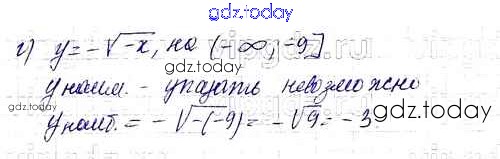 gdz.today
г) y = -√-x, на (-∞; -9]
gdz.today
gdz.today
у наим. - указать невозможно
gdz.today
у наиб. = -√-(-9) = -√9 = -3
gdz.today